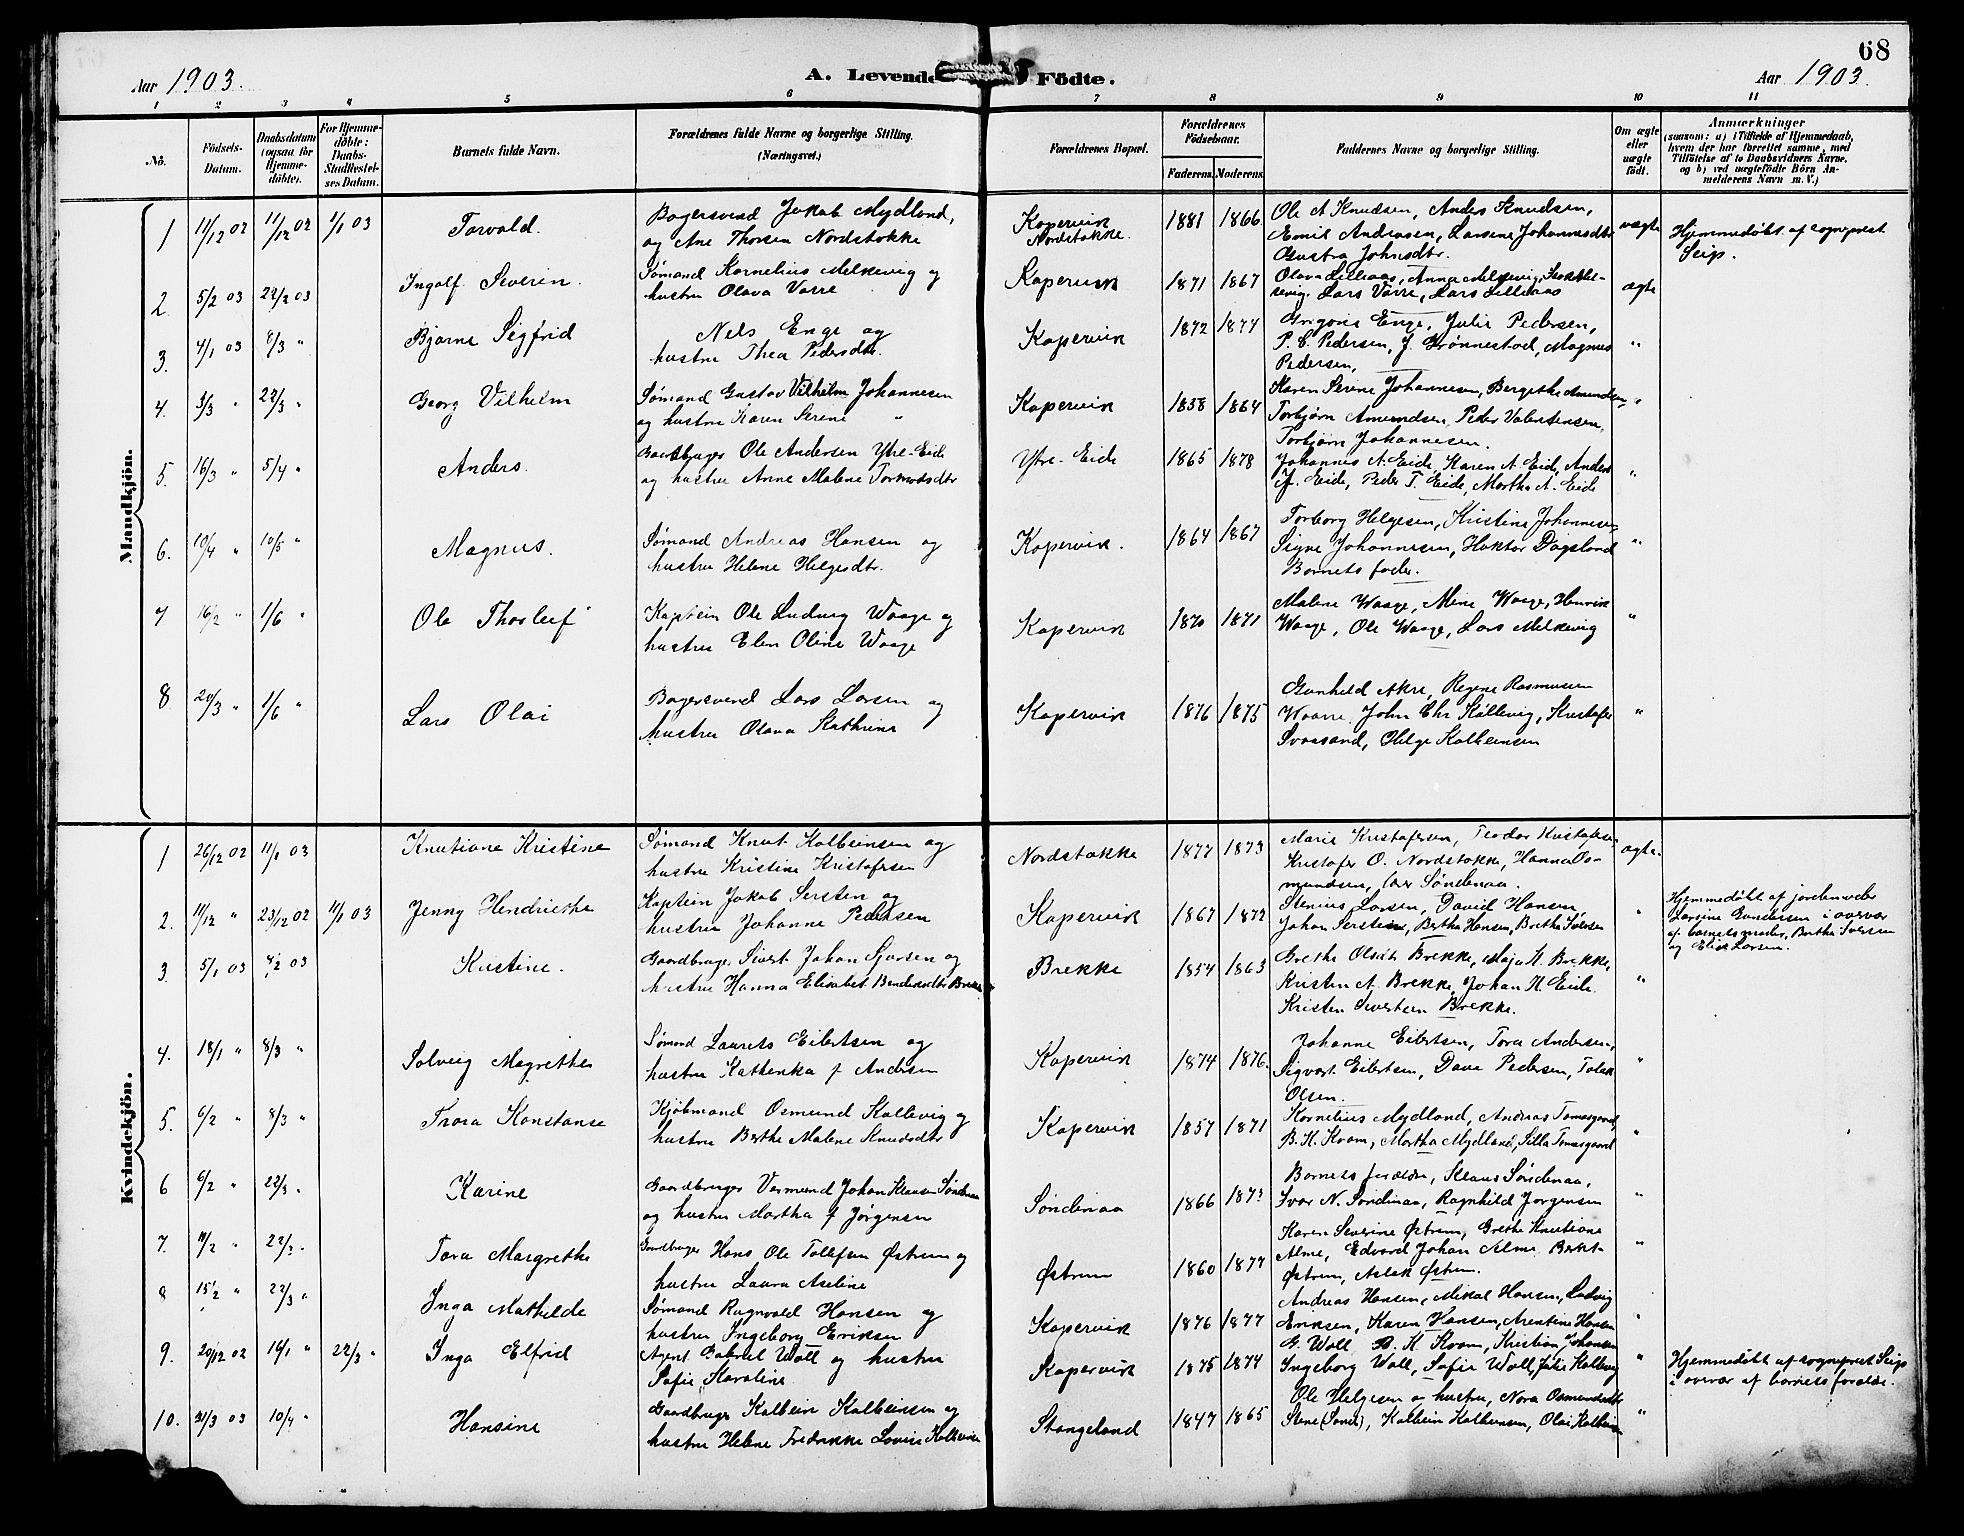 68
Aar 1903.
A. Levende Födte.
Aar 1903.
1 2 3 4 5 6 7 8 9 10 11
No.
Födsels-Datum.
Daabsdatum (ogsaa for Hjemme-döbte).
For Hjemme-döbte: Daabs-Stadfæstel-ses Datum.
Barnets fulde Navn.
Forældrenes fulde Navne og borgerlige Stilling. (Næringsvei.)
Forældrenes Bopæl.
Forældrenes Födselsaar.
Faderens. Moderens.
Faddernes Navne og borgerlige Stilling.
Om ægte eller uægte födt.
Anmærkninger
(saasom: a) i Tilfælde af Hjemmedaab, hvem der har forrettet samme, med Tilföielse af to Daabsvidners Navne, og b) ved uægtefödte Börn Anmelderens Navn m. V.)
Mandkjön.
1 11/12 02 11/12 02 1/1 03 Torvald.
Bagersvend Jakob Mydland,
og Ane Thorsen Nordstokke
Kopervik
Nordstokke.
1881 1866
Ole A Knudsen, Anders Knudsen,
Emil Andreasen, Larsine Johannesdtr
Gustva Johnsdtr.
uægte
Hjemmedøbt af sogneprest
Seip.
2. 5/2 03 22/2 03 Ingolf Severin.
Sømand Kornelius Melkevig og
hustru Olava Varre
Kopervik 1871 1867
Olava Lillaas, Anna Melkevig,
Lars Varre, Lars Lillaas
ægte
3. 4/1 03 8/3 " Bjarne Sigfrid
Nels Enge og
hustru Thea Pedersdtr.
Kopervik 1872 1874
Grigorie Enge, Julie Pedersen,
P. C. Pedersen, J. Grønnestad, Magnus
Pedersen,
"
4. 3/3 " 22/3 " Georg Vilhelm
Sømand Gustav Vilhelm Johannesen
og hustru Karen Serene "
Kopervik 1838 1864
Karen Serene Johannesen, Bergithe Amundsen,
Torbjørn Amundsen, Peder Valentensen,
Torbjørn Johannesen.
"
5. 16/3 " 5/4 " Anders.
Gaardbruger Ole Andersen Ytre-Eide
og hustru Anne Malene Tormodsdtr
Ytre-Eide 1865 1878
Johannes A. Eide, Karen A. Eide, Anders
J. Eide, Peder T. Eide, Martha A. Eide
"
6. 10/4 " 10/5 " Magnus.
Sømand Andreas Hansen og
hustru Helene Helgesdtr.
Kopervik. 1864 1867
Torborg Helgesen, Kristine Johannesen,
Signe Johannesen, Haktor Dagsland
Barnets fader.
"
7 16/2 " 1/6 " Ole Thorleif
Kaptein Ole Ludvig Waage og
hustru Elen Oline Waage
Kopervik 1870 1871
Malene Waage, Mine Waage, Henrik
Waage, Ole Waage, Lars Melkevig
"
8 20/3 " 1/6 " Lars Olai
Bagersvend Lars Larsen og
hustru Olava Kathrine
Kopervik 1876 1875
Gunhild Akre, Regene Rasmusen
Waarre, John Chr Kallevig, Kristofer
Svaasand, Helge Kolbeinsen
"
Kvindekjön.
1 26/12 02 11/1 03 Knutiane Kristine
Sømand Knut Kolbeinsen og
hustru Kristine Kristofersen
Nordstokke 1877 1873
Marie Kristofersen, Teodor Kristofersen
Kristofer O. Nordstokke, Hanna Os-
mundsen, Søndenaa.
ægte.
2. 11/12 " 23/12 02 11/1 03 Jenny Hendriethe
Kaptein Jakob Sersten og
hustru Johanne Pedersen
Kopervik 1867 1872
Stenius Larsen, David Hansen
Johan Sersten, Bertha Hansen, Bertha Iversen
"
Hjemmedøbt af jordemoder
Larsine Gundersen i overvær
af barnets moder, Bertha Iversen
og Elise Larsen.
3 5/1 03 8/2 03 Kristine.
Gaardbruger Sivert Johan Sjursen og
hustru Hanna Elisabet Bendiksdtr Brekke
Brekke 1854 1863
Grethe Olsdtr Brekke, Maja K. Brekke,
Kristen A. Brekke, Johan K. Eide.
Kristen Sivertsen Brekke.
"
4. 18/1 " 8/3 " Solveig Magrethe
Sømand Laurets Eilertsen og
hustru Kathenka f Andersen
Kopervik 1874 1876.
Johanne Eilertsen, Tora Andersen,
Sigvart Eilertsen, Dava Pedersen,
Olsen.
"
5. 6/2 " 8/3 " Trora Konstanse
Kjøbmand Osmund Kallevig og
hustru Berthe Malene Knudsdtr
Kopervik 1857 1871
Kornelius Mydland, Andreas Tomasgaard,
B. H. Kvam, Martha Mydland, Silla Tomasgaard
"
6 6/2 " 22/3 " Karine
Gaardbruger Vermund Johan Klausen Søndenaa
og hustru Martha f Jørgensen
Søndenaa 1866 1873
Barnets forældre, Klaus Søndenaa,
Ivar N. Søndenaa, Ragnhild Jørgensen
"
7. " 22/3 " Tora Margrethe
Gaardbruger Hans Ole Tollefsen Østrem og
hustru Laura Aseline
Østrem 1860 1877
Karen Severine Østrem, Grethe Knutiane
Alme, Edvard Johan Alme, Berit
Østrem, Aslak Østrem.
"
8 15/2 " 22/3 " Inga Mathilde
Sømand Ragnvald Hansen og
hustru Ingeborg Eriksen
Kopervik 1876 1877
Andreas Hansen, Mikal Hansen, Ludvig
Eriksen, Karen Hansen, Arentine Hansen
"
9. 20/12 02 16/1 " 22/3 " Inga Elfrid
Agent Gabriel Wall og hustru
Sofie Karoline.
Kopervik 1875 1874
G. Wall, B. H. Kvam, Kristian Johansen
Ingeborg Wall, Sofie Wall, Julie Kallevig
"
Hjemmedøbt af sogneprest Seip
i overvær af barnets forældre.
10. 31/3 03 10/4 " Hansine
Gaardbruger Kolbein Kolbeinsen og
hustru Helene Fredrikke Lovise Kolbeinsen
Stangeland 1847 1865
Ole Helgesen og hustru, Nora Osmundsdtr
Stene (Sand), Kolbein Kolbeinsen, Olai Kolbeinsen
"